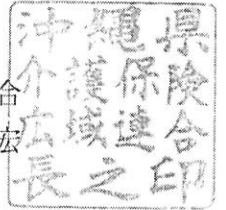 沖縄県
介護保険
広域連合
長之印
合